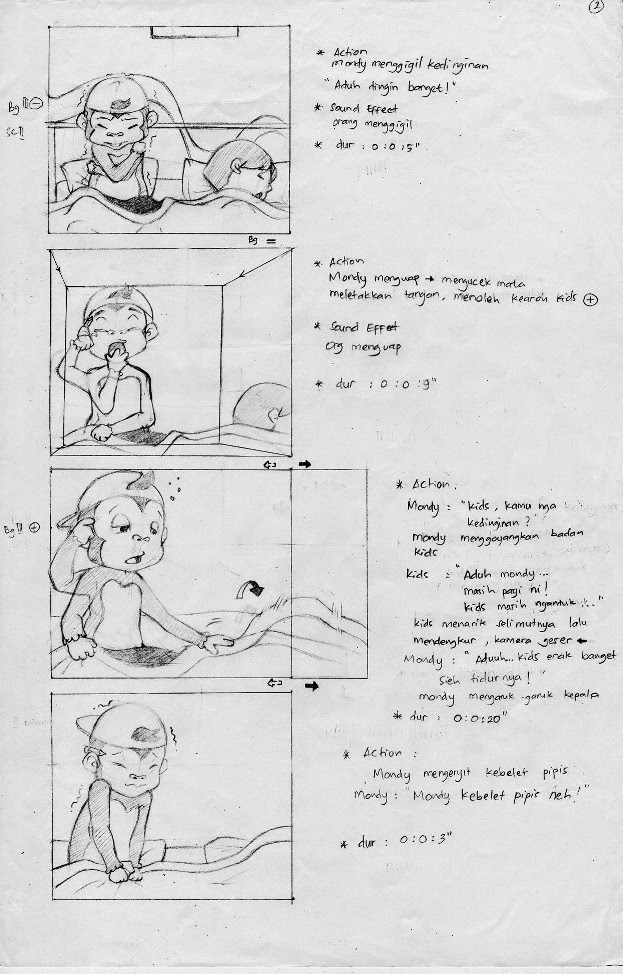 2
* Action
Mondy menggigil kedinginan
"Aduh dingin banget!"
Bg II -
* Sound Effect
orang menggigil
* dur : 0:0:5"
Bg =
* Action
Mondy menguap → mengucek mata
meletakkan tangan, menoleh kearah kids +
* Sound Effect
Org menguap
* dur : 0:0:9"
* Action :
Bg II +
Mondy : "Kids, kamu nga
kedinginan ?"
mondy menggoyangkan badan
kids
kids : "Aduh mondy...
masih pagi ni!
kids masih ngantuk..."
kids menarik selimutnya lalu
mendengkur, kamera geser ←
Mondy : "Aduuh.. kids enak banget
seh tidurnya!"
mondy mengaruk-garuk kepala
* dur : 0:0:20"
* Action :
Mondy mengernyit kebelet pipis
Mondy : "Mondy kebelet pipis neh!"
* dur : 0:0:3"